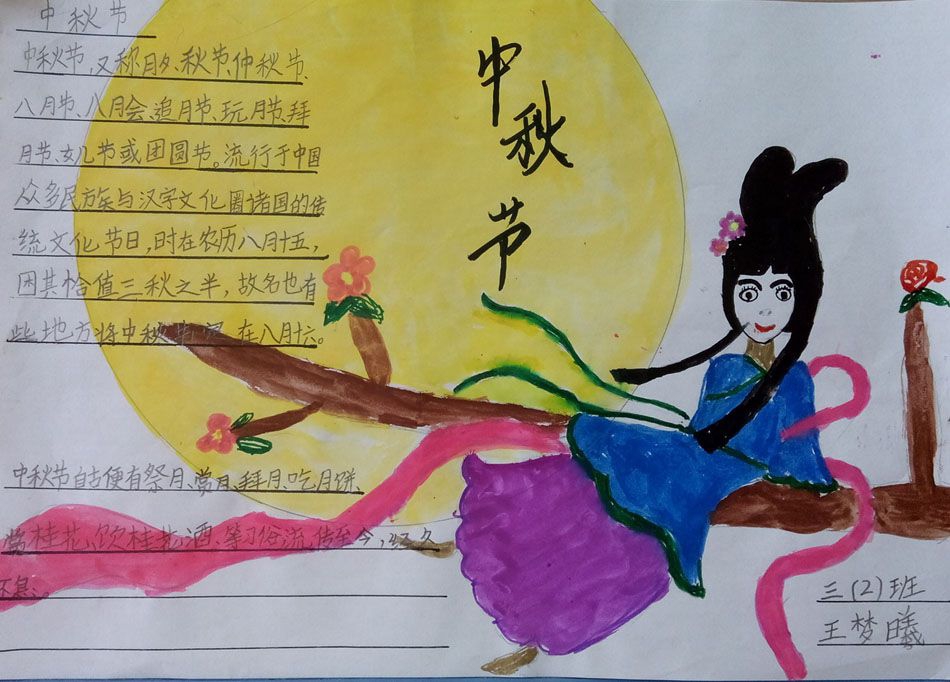 中秋节
中秋节，又称月夕、秋节、仲秋节、
八月节、八月会、追月节、玩月节、拜
月节、女儿节或团圆节。流行于中国
众多民族与汉字文化圈诸国的传
统文化节日，时在农历八月十五，
因其恰值三秋之半，故名也有
些地方将中秋节定在八月十六。
中秋节
中秋节自古便有祭月、赏月、拜月、吃月饼、
赏桂花、饮桂花酒、等习俗流传至今，经久
不息。
三(2)班
王梦曦